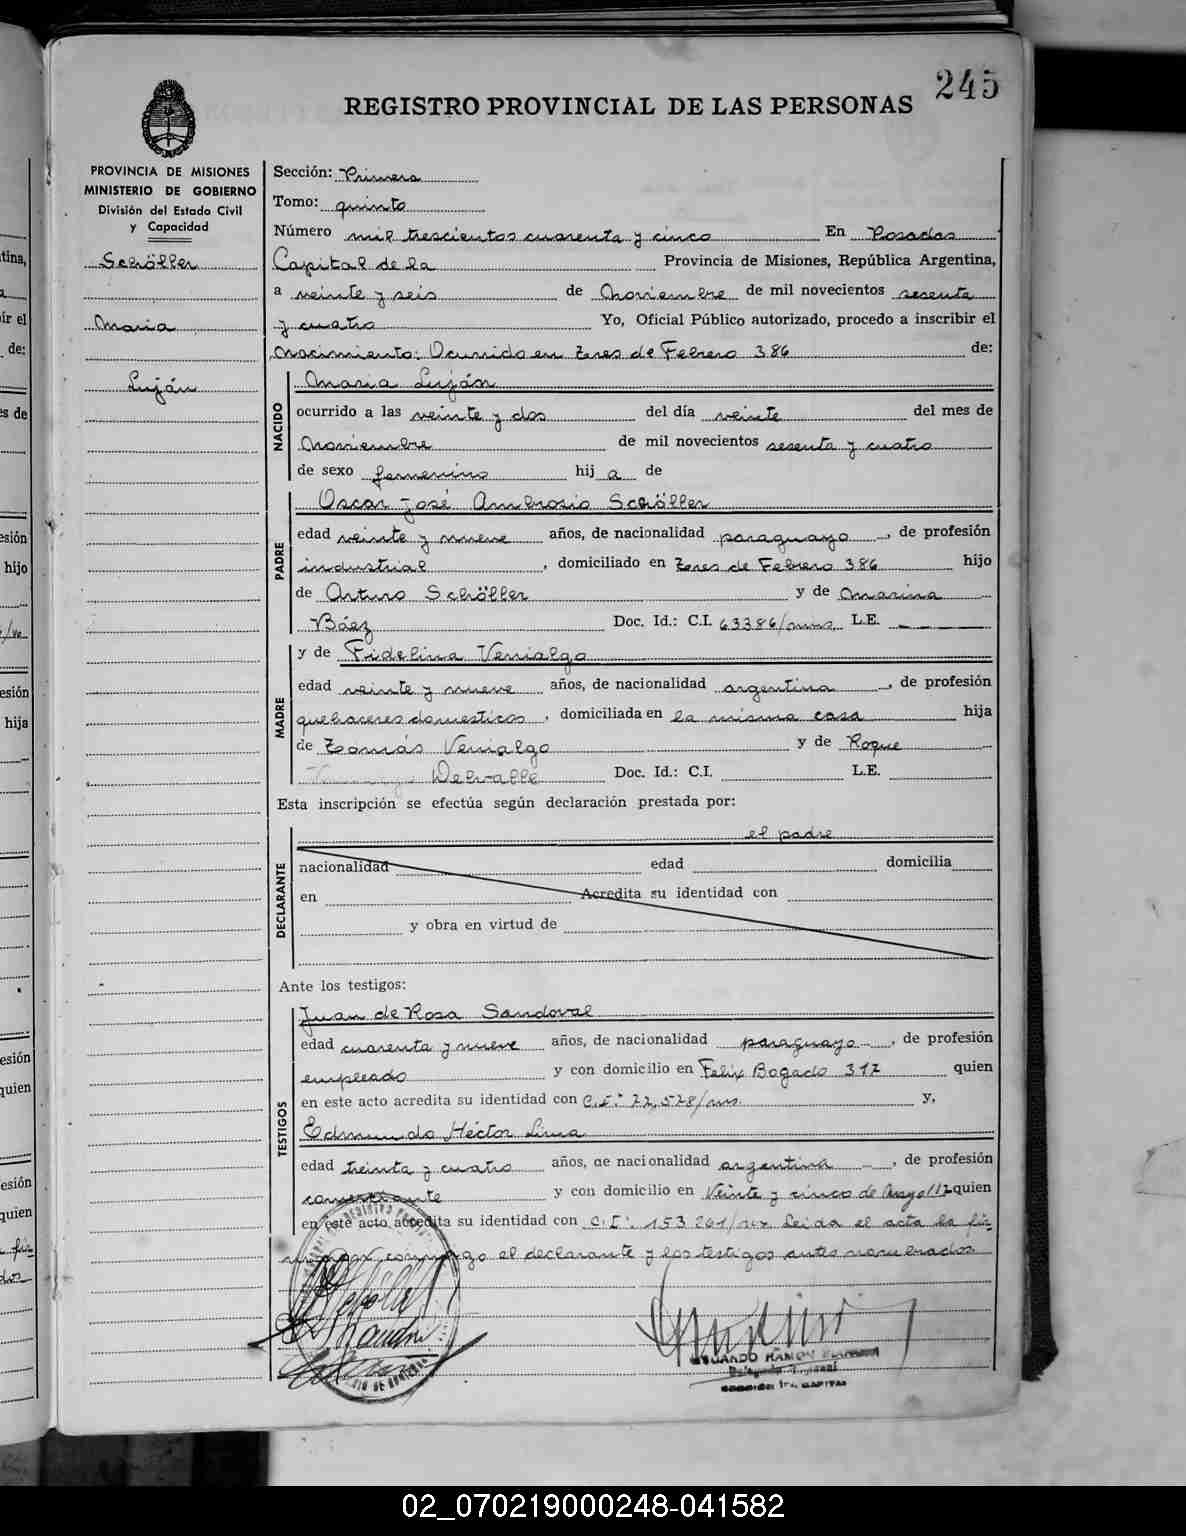 245
REGISTRO PROVINCIAL DE LAS PERSONAS
PROVINCIA DE MISIONES
MINISTERIO DE GOBIERNO
División del Estado Civil
y Capacidad
Schöller
Maria
Luján
Sección: Primera
Tomo: quinto
Número mil trescientos cuarenta y cinco En Posadas
Capital de la Provincia de Misiones, República Argentina,
a veinte y seis de Noviembre de mil novecientos sesenta
y cuatro Yo, Oficial Público autorizado, procedo a inscribir el
Nacimiento: Ocurrido en Tres de Febrero 386 de:
NACIDO
Maria Luján
ocurrido a las veinte y dos del día veinte del mes de
Noviembre de mil novecientos sesenta y cuatro
de sexo femenino hij a de
PADRE
Oscar José Ambrosio Schöller
edad veinte y nueve años, de nacionalidad paraguayo, de profesión
industrial, domiciliado en Tres de Febrero 386 hijo
de Arturo Schöller y de Marina
Báez Doc. Id.: C.I. 63386/mns. L.E. — — —
MADRE
y de Fidelina Venialgo
edad veinte y nueve años, de nacionalidad argentina, de profesión
quehaceres domesticos, domiciliada en la misma casa hija
de Tomás Venialgo y de Roque
Delvalle Doc. Id.: C.I. L.E.
Esta inscripción se efectúa según declaración prestada por:
el padre
DECLARANTE
nacionalidad edad domicilia
en Acredita su identidad con
y obra en virtud de
Ante los testigos:
TESTIGOS
Juan de Rosa Sandoval
edad cuarenta y nueve años, de nacionalidad paraguayo, de profesión
empleado y con domicilio en Felix Bogado 317 quien
en este acto acredita su identidad con C.I.: 72,578/mns. y,
Edmundo Héctor Lima
edad treinta y cuatro años, de nacionalidad argentina, de profesión
comerciante y con domicilio en Veinte y cinco de Mayo 117 quien
en este acto acredita su identidad con C.I: 153261/ Leida el acta la fir-
conmigo el declarante y los testigos antes nombrados
EDUARDO RAMON
SECCION 1ra. CAPITAL
02_070219000248-041582